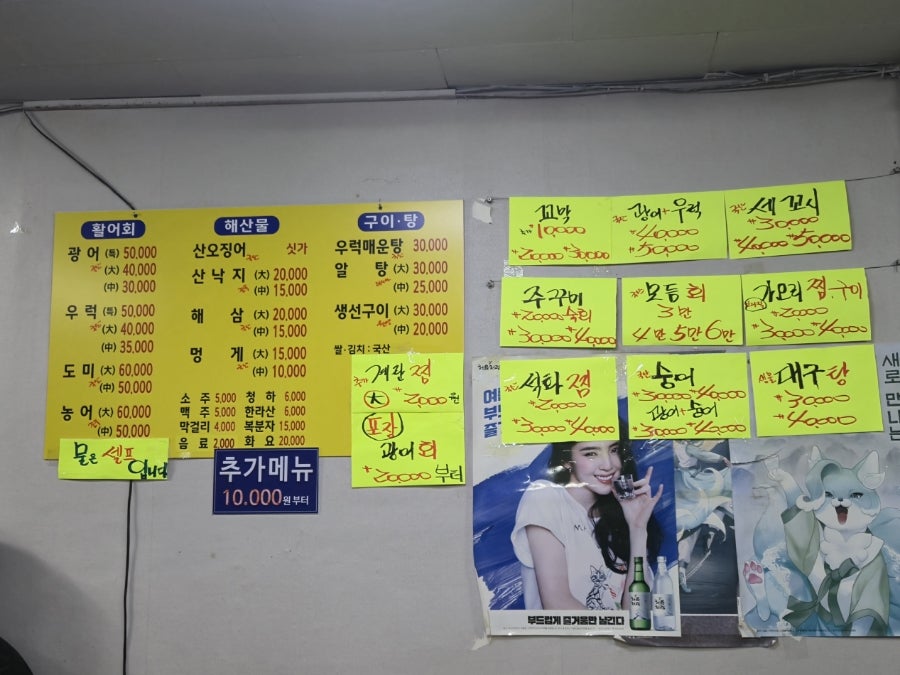 활어회
광어 (특) 50,000
(大) 40,000
(中) 30,000
우럭 (특) 50,000
(大) 40,000
(中) 35,000
도미 (大) 60,000
(中) 50,000
농어 (大) 60,000
(中) 50,000
해산물
산오징어 싯가
산낙지 (大) 20,000
(中) 15,000
해삼 (大) 20,000
(中) 15,000
멍게 (大) 15,000
(中) 10,000
소주 5,000 청하 6,000
맥주 5,000 한라산 6,000
막걸리 4,000 복분자 15,000
음료 2,000 화요 20,000
구이·탕
우럭매운탕 30,000
알탕 (大) 30,000
(中) 25,000
생선구이 (大) 30,000
(中) 20,000
쌀·김치 : 국산
물은 셀프 입니다
추가메뉴
10.000원 부터
계란찜
大 2,000원
포장
광어회
20,000 부터
꼬막
10,000
20,000 30,000
광어+우럭
40,000
50,000
세꼬시
30,000
40,000 50,000
주꾸미
20,000
30,000 40,000
모듬회
3만
4만 5만 6만
가오리 찜.구이
20,000
30,000 40,000
석화찜
20,000
30,000 40,000
숭어
30,000 40,000
광어+숭어
대구탕
30,000
40,000
처음처럼
부드럽게 즐거움만 날린다
새
로
만
나
는